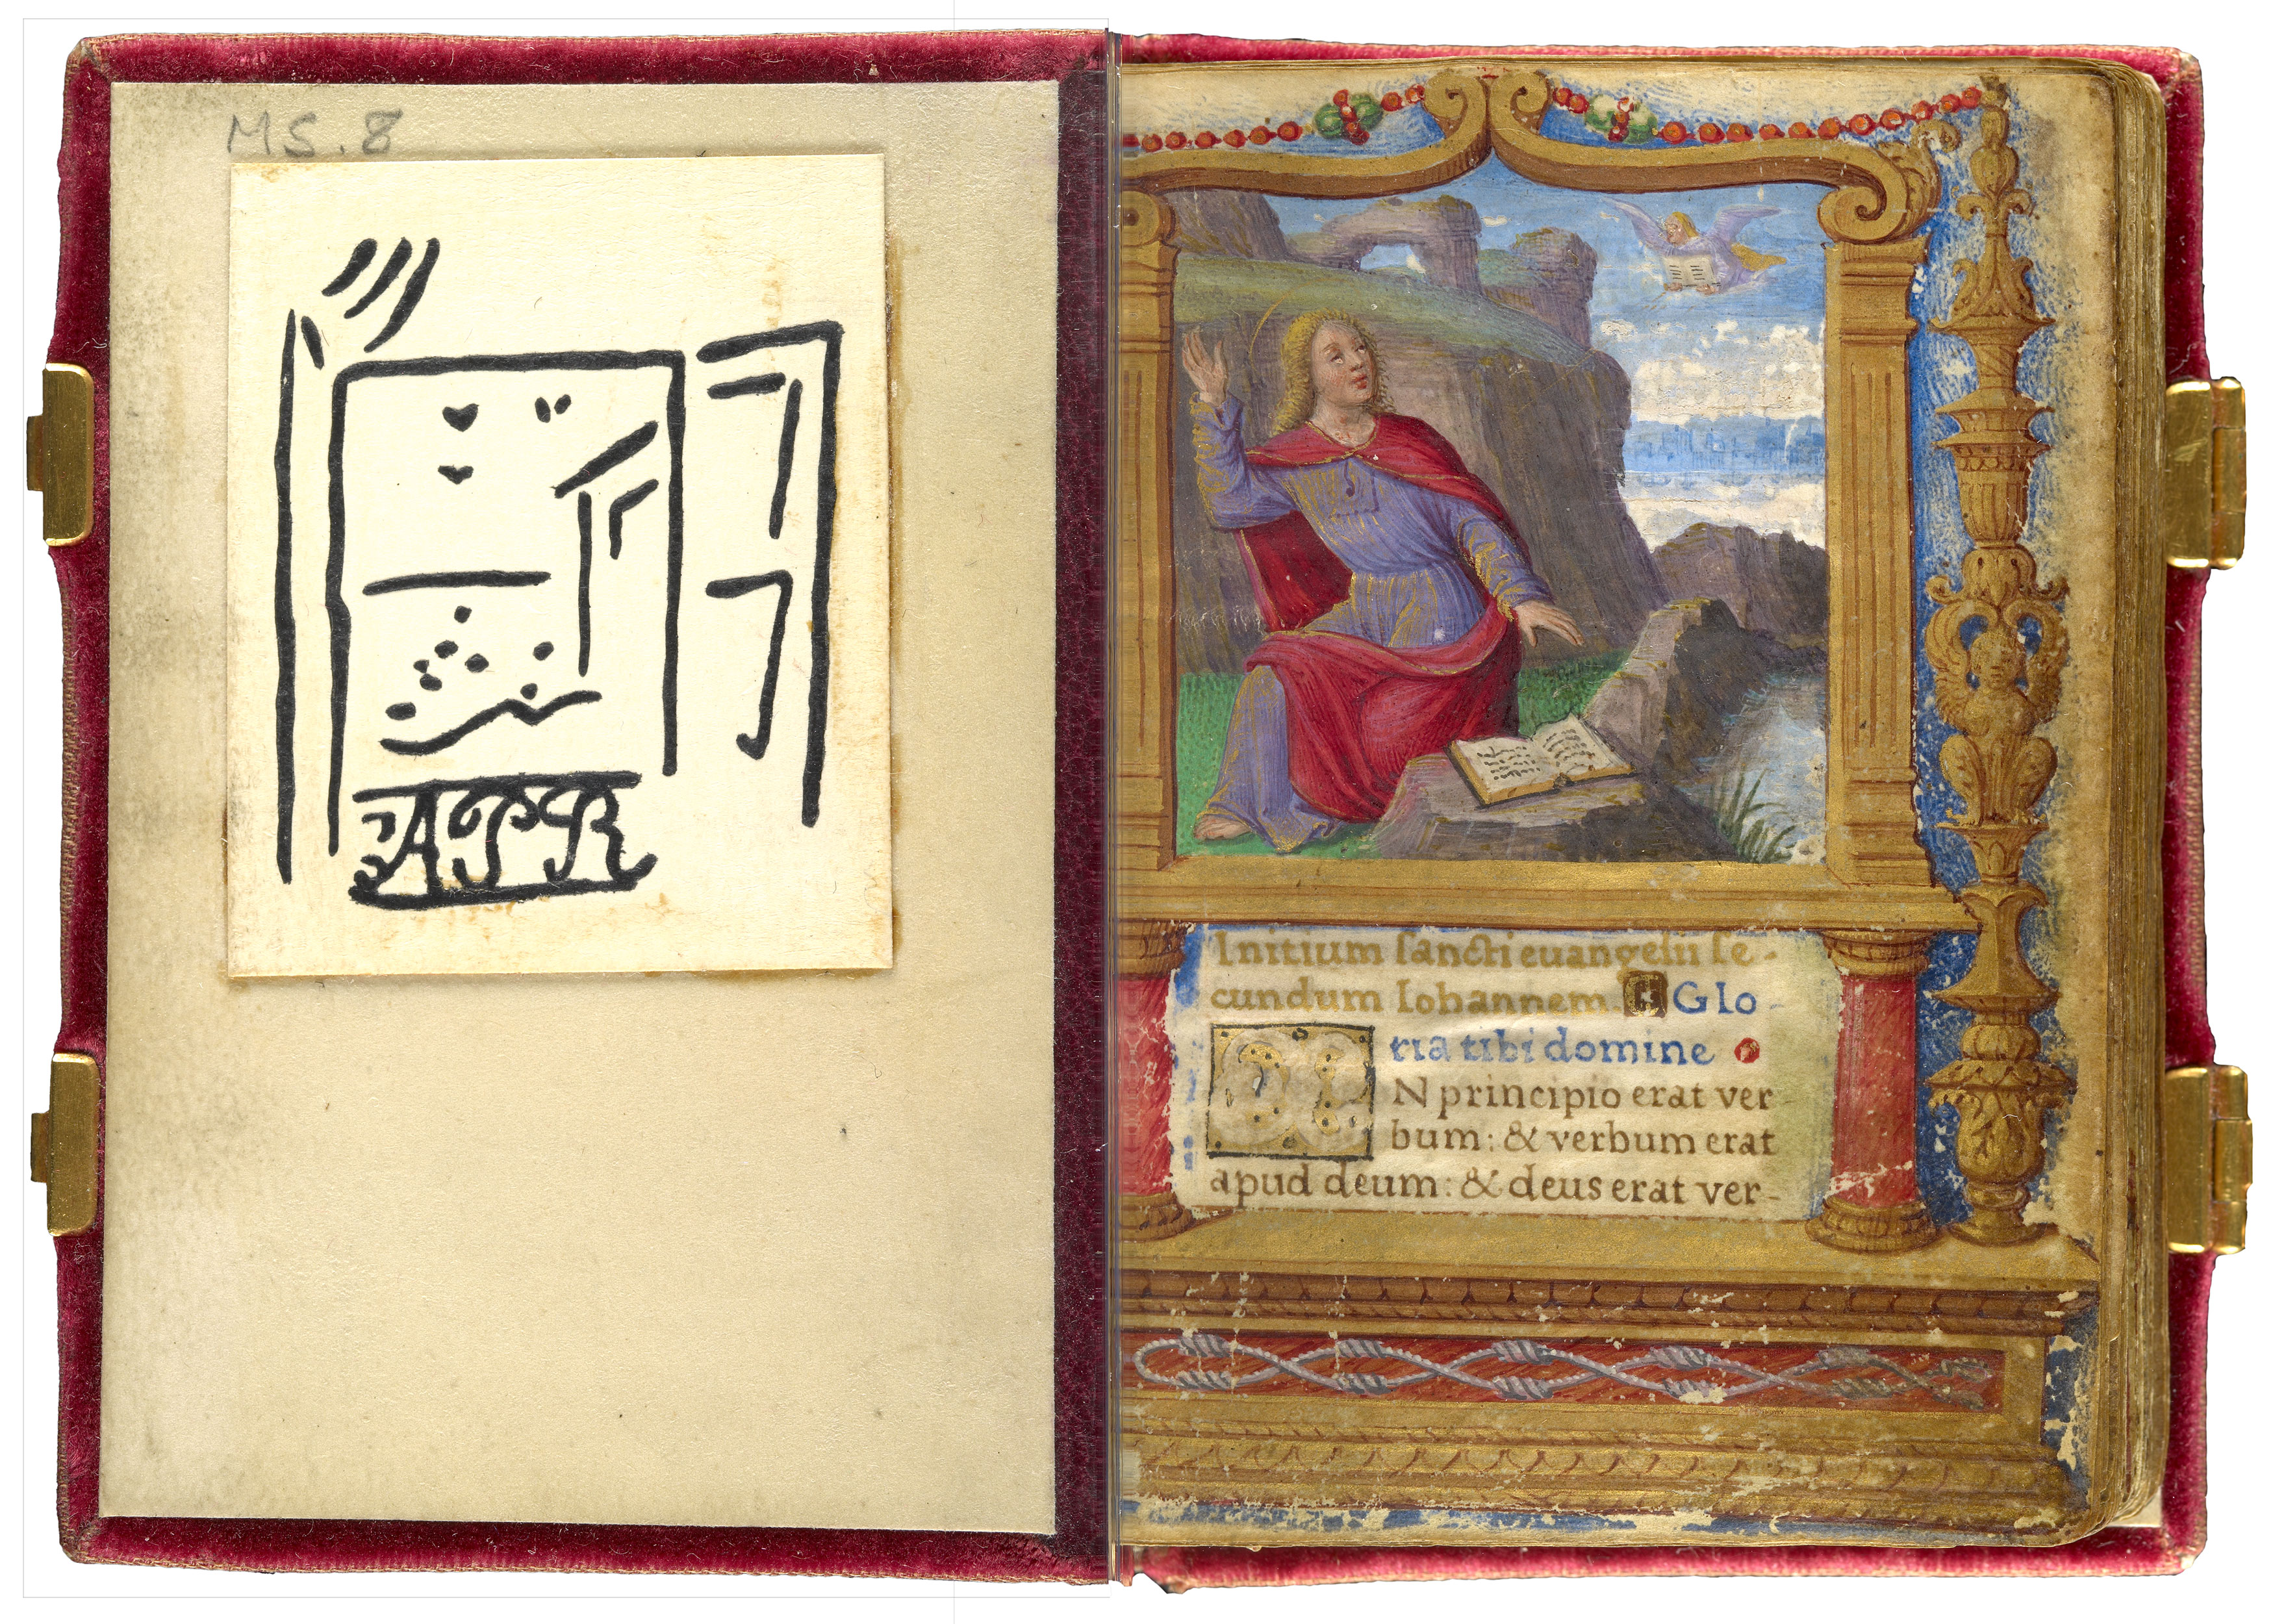 MS. 8
Initium sancti evangelii se-
cundum Iohannem. Glo-
ria tibi domine
N principio erat ver-
bum: & verbum erat
apud deum: & deus erat ver-